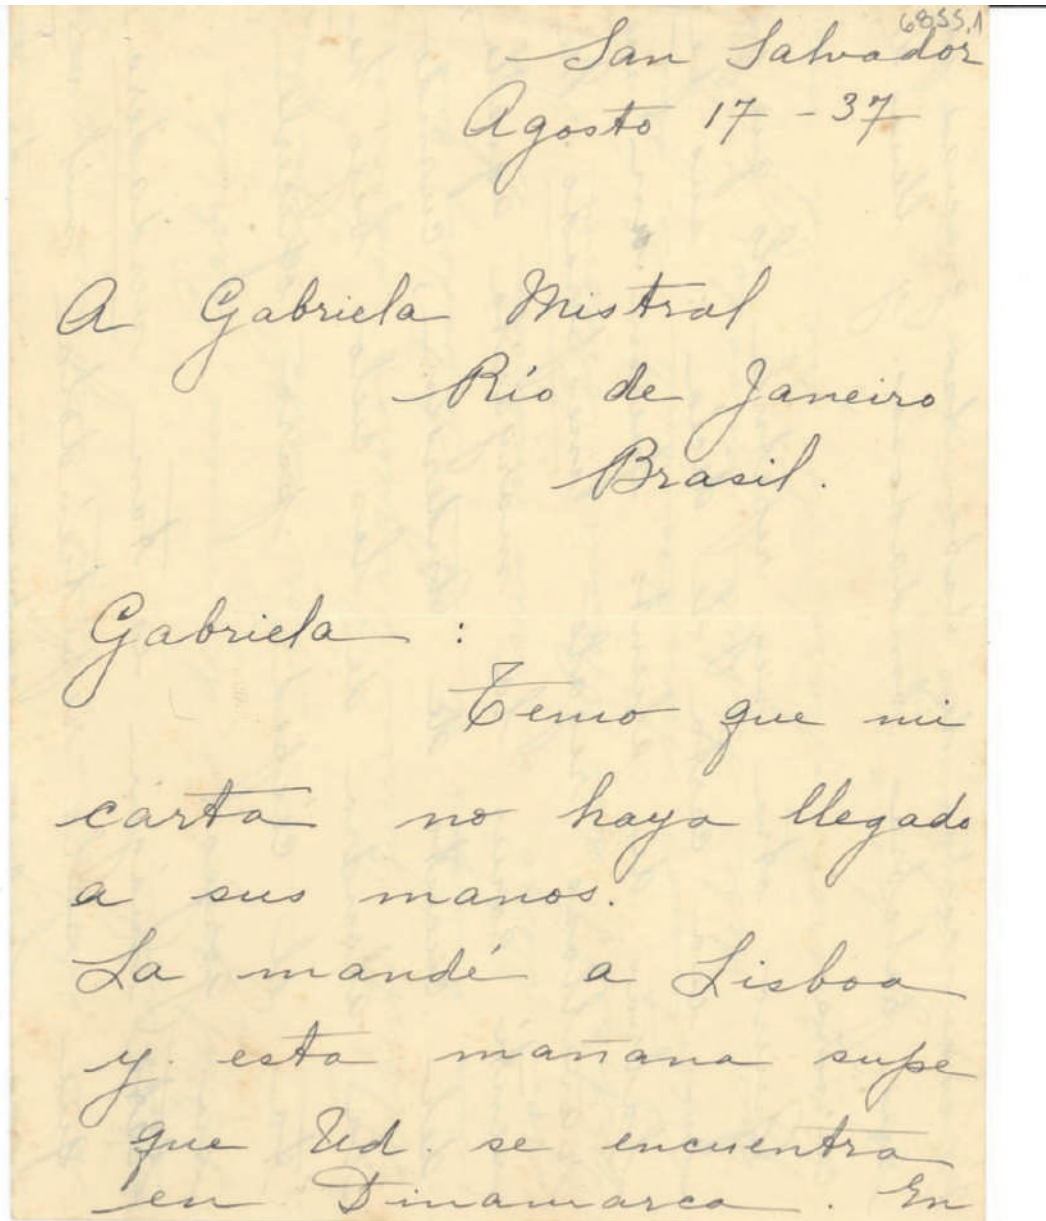 6855.1
San Salvador
Agosto 17 - 37
A Gabriela Mistral
Río de Janeiro
Brasil.
Gabriela :
Temo que mi
carta no haya llegado
a sus manos.
La mandé a Lisboa
y esta mañana supe
que Ud. se encuentra
en Dinamarca. En